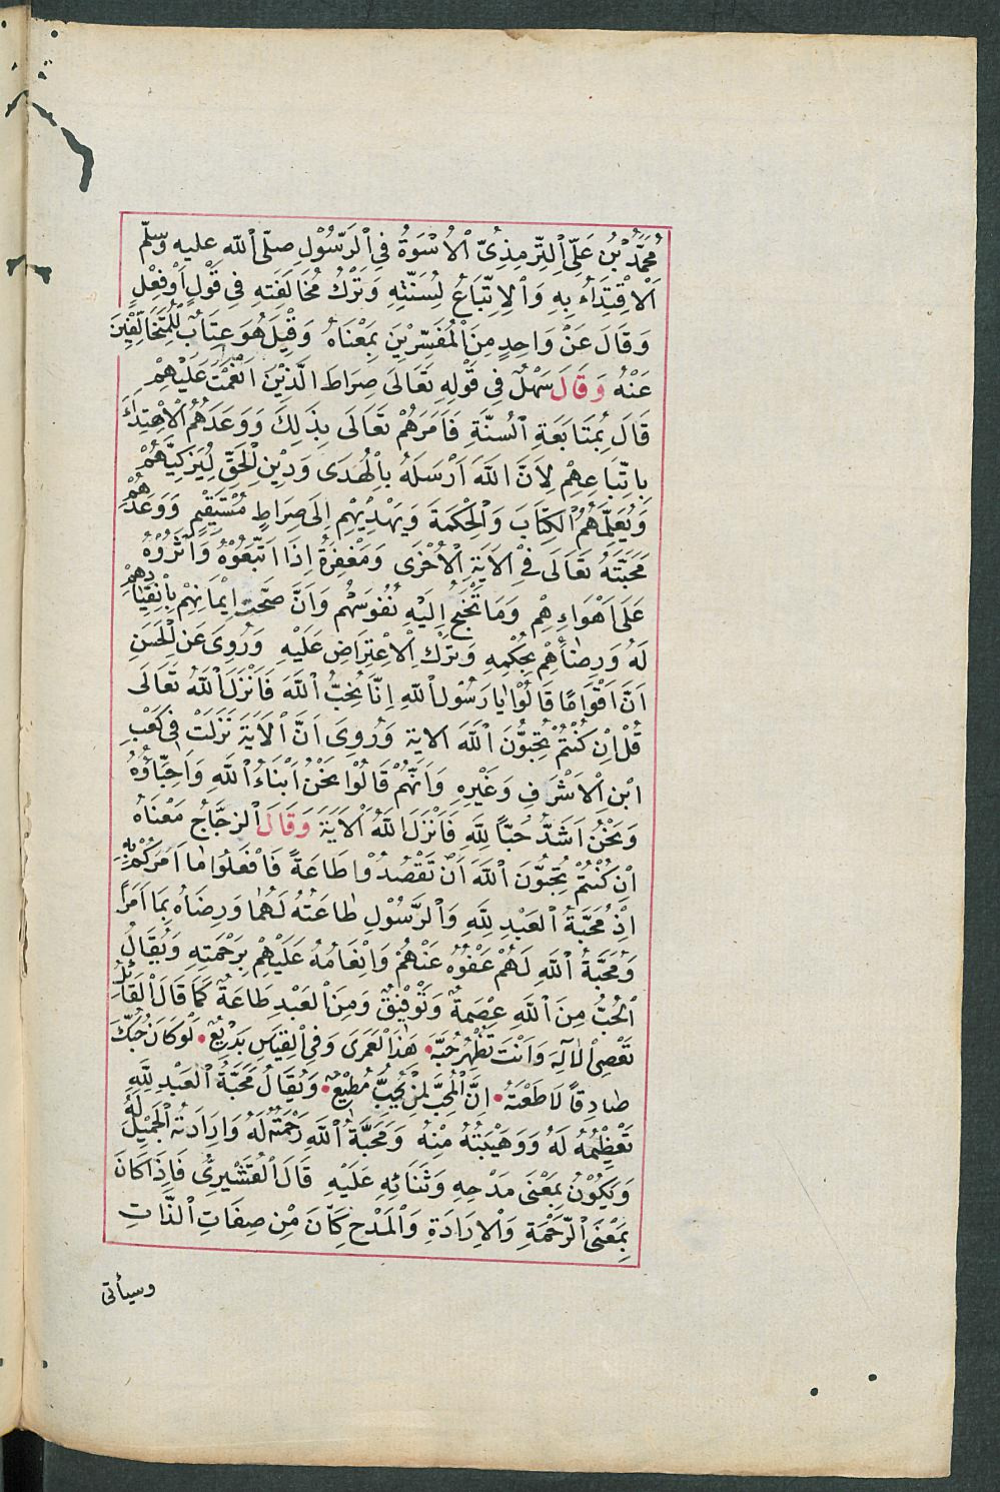 مُحَمَّدُ بْنُ عَلِيٍّ التِّرْمِذِيُّ الْاُسْوَةُ فِي الرَّسُوْلِ صلّى الله عليه وسلّم
اَلْاِقْتِدَاءُ بِهِ وَالْاِتِّبَاعُ لِسُنَّتِهِ وَتَرْكُ مُخَالَفَتِهِ فِي قَوْلٍ اَوْفِعْلٍ
وَقَالَ عَنْ وَاحِدٍ مِنَ الْمُفَسِّرِيْنَ بِمَعْنَاهُ وَقِيْلَ هُوَ عِتَابٌ لِلْمُتَخَالِّفِيْنَ
عَنْهُ وَقَالَ سَهْلٌ فِي قَوْلِهِ تَعَالَى صِرَاطَ الَّذِيْنَ اَنْعَمْتَ عَلَيْهِمْ
قَالَ بِمُتَابَعَةِ السُّنَّةِ فَاَمَرَهُمْ تَعَالَى بِذَلِكَ وَوَعَدَهُمُ الْاِهْتِدَاءَ
بِاتِّبَاعِهِمْ لِاَنَّ اللهَ اَرْسَلَهُ بِالْهُدَى وَدِيْنِ الْحَقِّ لِيُزَكِّيَهُمْ
وَيُعَلِّمَهُمُ الْكِتَابَ وَالْحِكْمَةَ وَيَهْدِيْهِمْ اِلَى صِرَاطٍ مُسْتَقِيْمٍ وَوَعَدَهُمْ
مَحَبَّتَهُ تَعَالَى فِي الْاَيَةِ الْاُخْرَى وَمَغْفِرَةً اِذَا اتَّبَعُوْهُ وَاٰثَرُوْهُ
عَلَى اَهْوَاءِهِمْ وَمَا تَجْنَحُ اِلَيْهِ نُفُوْسُهُمْ وَاَنَّ صِحَّةَ اِيْمَانِهِمْ بِاِنْقِيَادِهِمْ
لَهُ وَرِضَاهُمْ بِحُكْمِهِ وَتَرْكِ الْاِعْتِرَاضِ عَلَيْهِ وَرُوِىَ عَنِ الْحَسَنِ
اَنَّ اَقْوَامًا قَالُوْا يَا رَسُوْلَ اللهِ اِنَّا نُحِبُّ اللهَ فَاَنْزَلَ اللهُ تَعَالَى
قُلْ اِنْ كُنْتُمْ تُحِبُّوْنَ اللهَ الاية وَرُوِىَ اَنَّ الْاَيَةَ نَزَلَتْ فِي كَعْبِ
ابْنِ الْاَشْرَفِ وَغَيْرِهِ وَاَنَّهُمْ قَالُوْا نَحْنُ اَبْنَاءُ اللهِ وَاَحِبَّاؤُهُ
وَنَحْنُ اَشَدُّ حُبًّا لِلّٰهِ فَاَنْزَلَ اللهُ الْاَيَةَ وَقَالَ الزَّجَّاجُ مَعْنَاهُ
اِنْ كُنْتُمْ تُحِبُّوْنَ اللهَ اَنْ تَقْصُدُوْا طَاعَةً فَافْعَلُوْا مَا اَمَرَكُمْ بِهِ
اِذْ مُحَبَّةُ الْعَبْدِ لِلّٰهِ وَالرَّسُوْلِ طَاعَتُهُ لَهُمَا وَرِضَاهُ بِمَا اَمَرَا
وَمُحَبَّةُ اللهِ لَهُمْ عَفْوُهُ عَنْهُمْ وَاِنْعَامُهُ عَلَيْهِمْ بِرَحْمَتِهِ وَيُقَالُ
اَلْحُبُّ مِنَ اللهِ عِصْمَةٌ وَتَوْفِيْقٌ وَمِنَ الْعَبْدِ طَاعَةٌ كَمَا قَالَ الْقَائِلُ
تَعْصِى الْاِلٰهَ وَاَنْتَ تُظْهِرُ حُبَّهُ • هَذَا لَعَمْرِى وَفِي الْقِيَاسِ بَدِيْعٌ • لَوْكَانَ حُبُّكَ
صَادِقًا لَاَطَعْتَهُ • اِنَّ الْمُحِبَّ لِمَنْ يُحِبُّ مُطِيْعٌ • وَيُقَالُ مَحَبَّةُ الْعَبْدِ لِلّٰهِ
تَعْظِيْمُهُ لَهُ وَوَهَيْبَتُهُ مِنْهُ وَمَحَبَّةُ اللهِ رَحْمَتُهُ لَهُ وَاِرَادَتُهُ الْجَمِيْلَ لَهُ
وَيَكُوْنُ بِمَعْنَى مَدْحِهِ وَثَنَائِهِ عَلَيْهِ قَالَ الْقُشَيْرِىُّ فَاِذَا كَانَ
بِمَعْنَى الرَّحْمَةِ وَالْاِرَادَةِ وَالْمَدْحِ كَانَ مِنْ صِفَاتِ الذَّاتِ
وسيأتى